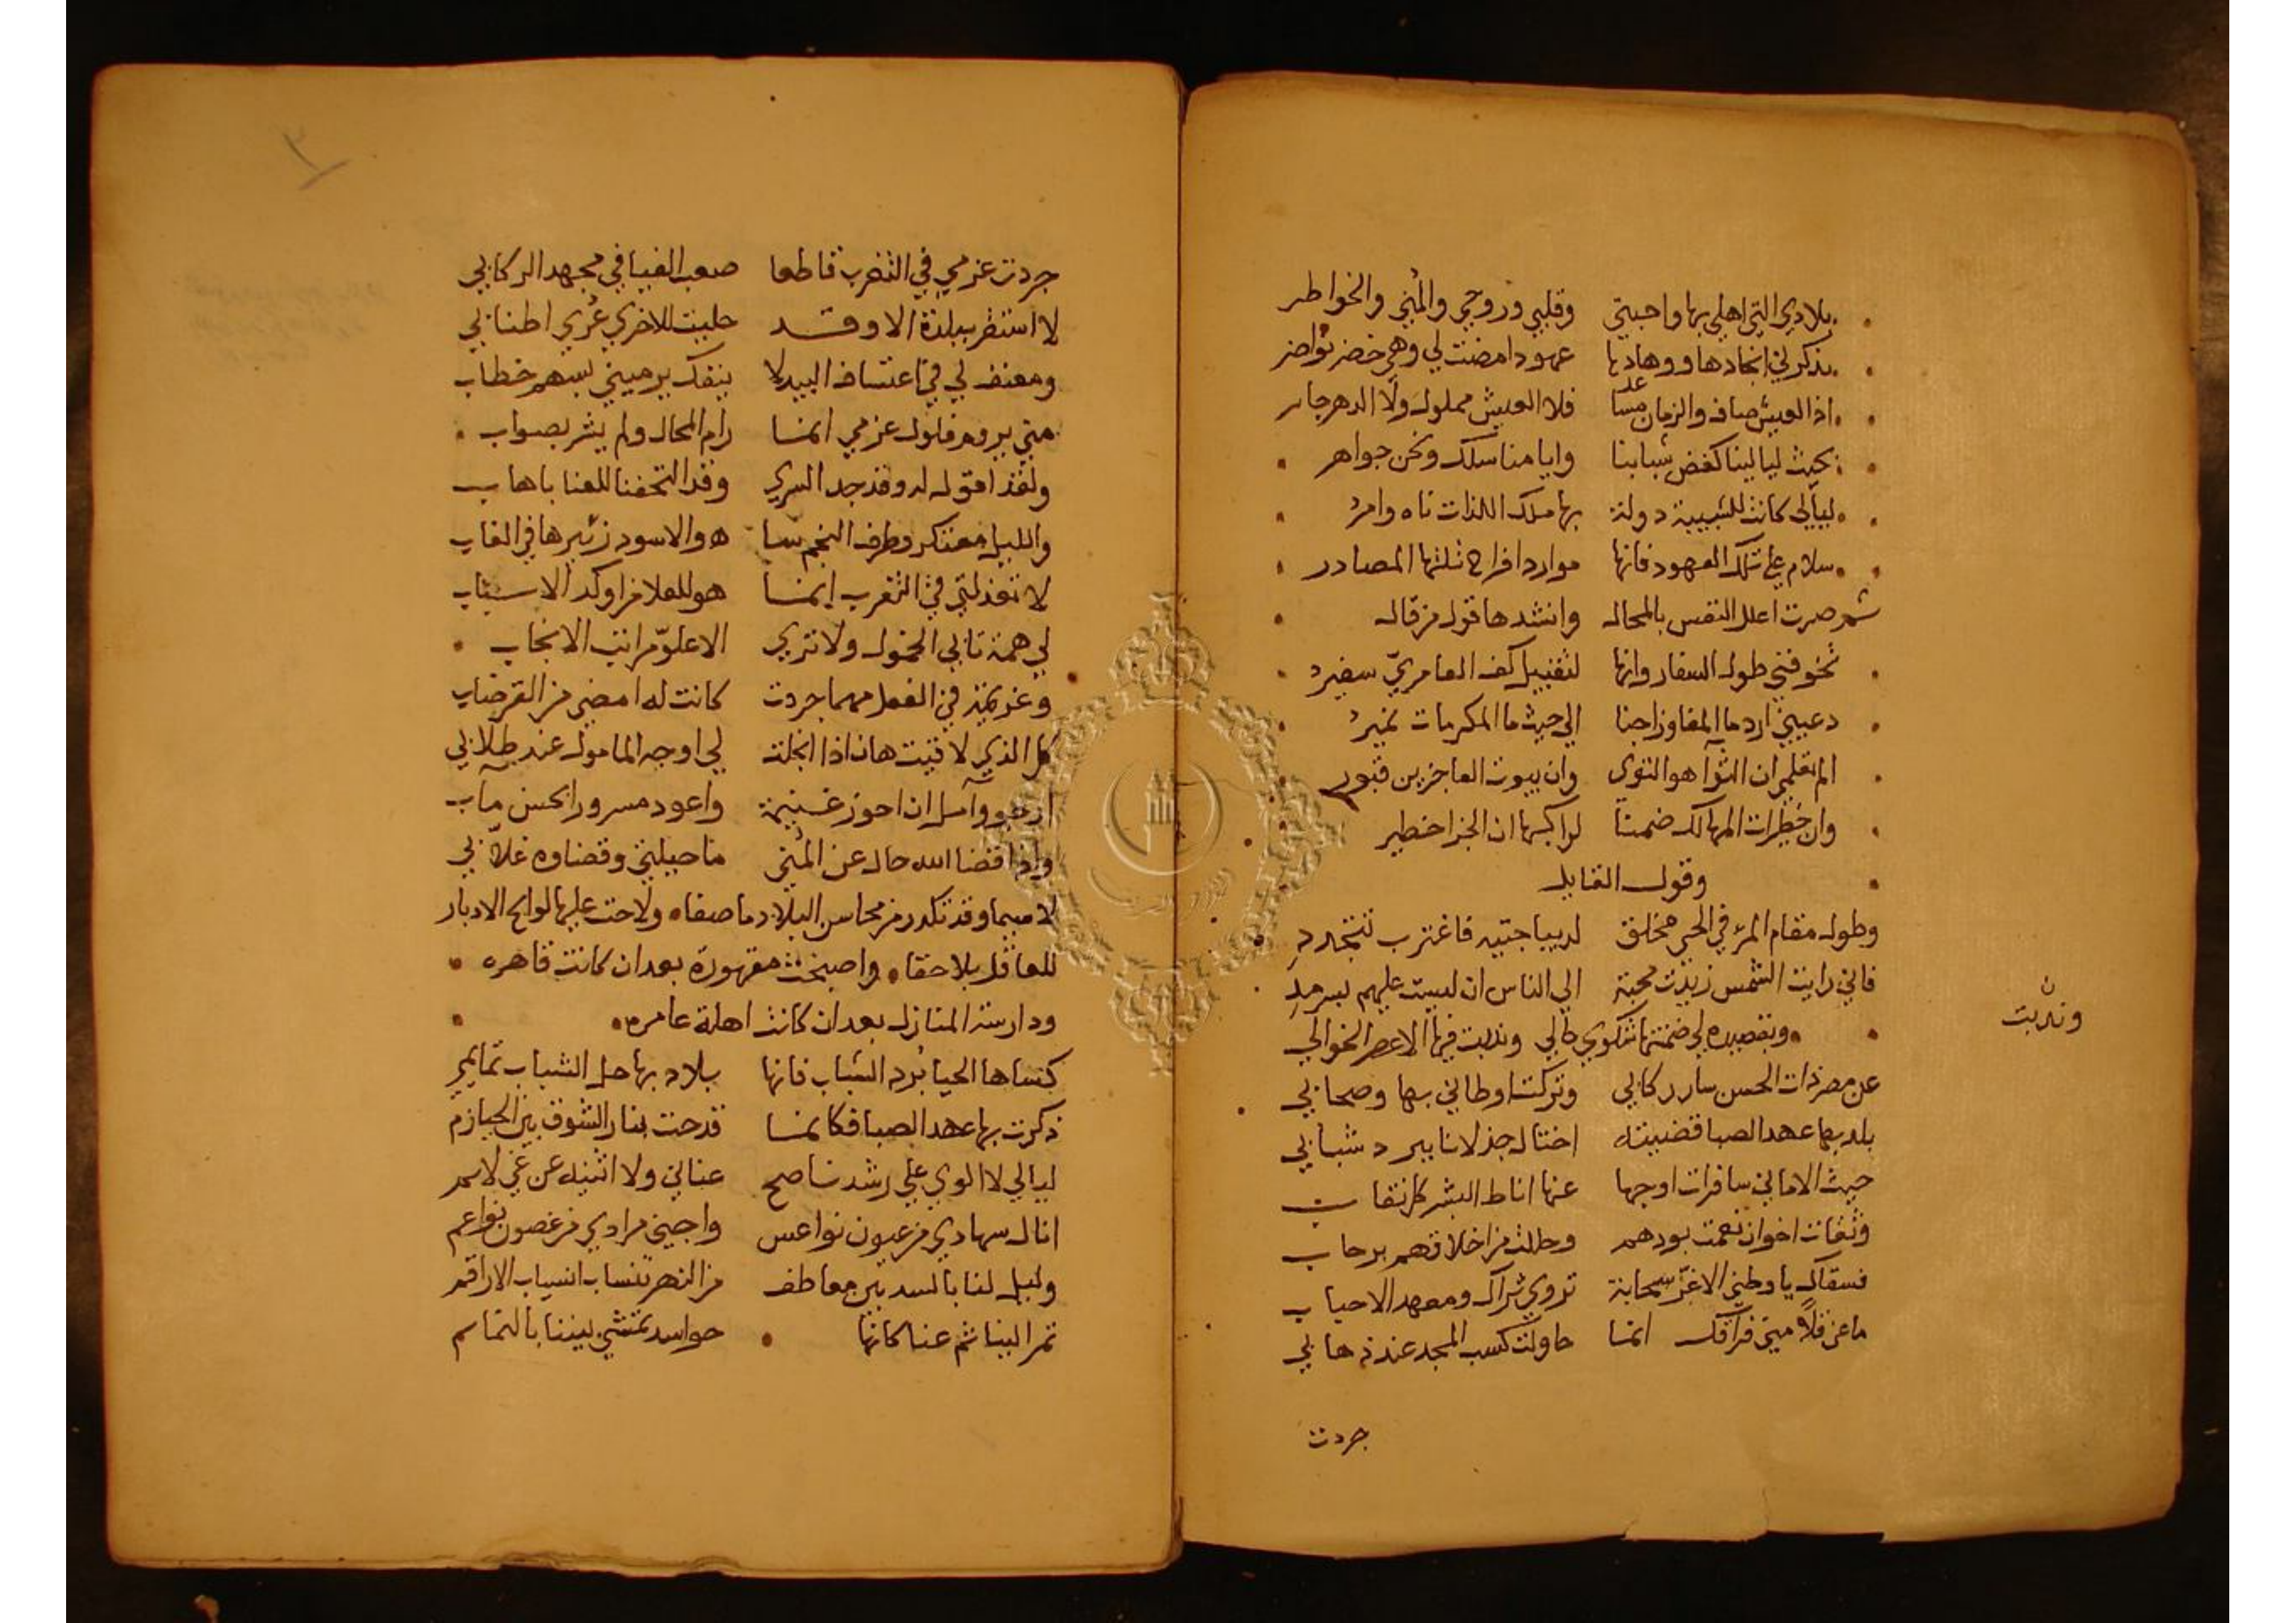 بلادي التي اهلي بها واحبتي وقلبي وروحي والمنى والخواطر
يذكرني انجادها ووهادها عهودا مضت لي وهي خضر نواضر
اذ العيش صاف والزمان مساعد فلا العيش مملول ولا الدهر جاير
بحيث ليالينا كغض شبابنا وايامنا سلك ونحن جواهر
ليالي كانت للشبيبة دولة بها ملك اللذات ناه وامر
سلام على تلك العهود فانها موارد افراح تلتها المصادر
ثم صرت اعلل النفس بالمحال وانشدها قول من قال
تخوفني طول السفار وانها لتقبيل كف العامري سفير
دعيني ارد ما المفاوز اجنا الي حيث ما المكرمات نمير
الم تعلمي ان الثوآ هو التوى وان بيوت العاجزين قبور
وان خطرات المهالك ضمنا لراكبها ان الجزا خطير
وقول القايل
وطول مقام المرء في الحي مخلق لديباجتيه فاغترب تتجدد
فاني رايت الشمس زيدت محبة الي الناس ان ليست عليهم بسرمد
وبقصيده لي ضمنتها شكوي حالي وندبت فيها الاعصر الخوالي
ن
وندبت
عن مصر ذات الحسن سار ركابي وتركت اوطاني بها وصحابي
بلد بها عهد الصبا قضيته اختال جذلانا ببرد شبابي
حيث الاماني سافرات اوجها عنها اناط البشر كل نقاب
وثقات اخوان نعمت بودهم وحللت من اخلاقهم برحاب
فسقاك يا وطني الاغر سحابة تروي ثراك ومعهد الاحباب
ما عن قلاً مني فراقك انما حاولت كسب المجد عند ذهابي
جردت
٣
جردت عزمي في التغرب قاطعا صعب الفيافي مجهد الركابي
لا استقر ببلدة الا وقد حليت للاخري عري اطنابي
ومعنف لي في اعتساف البيد لا ينفك يرميني بسهم خطاب
متي يروم فلول عزمي انما رام المحال ولم يشر بصواب
ولقد اقول له وقد جد السري وقد التحفنا للعنا باهاب
والليل معتكر وطرف النجم سا هو والاسود زئيرها في الغاب
لا تعذلني في التغرب انما هو للعلا من اوكد الاسباب
لي همة تابي الخمول ولا تري الا علو مراتب الانجاب
وعزيمة في الفعل مهما جردت كانت له امضي من القرضاب
كل الذي لاقيت هان اذا انجلت لي اوجه المامول عند طلابي
ارجو وآمل ان احوز غنيمة واعود مسرورا بحسن مآب
واذا قضا الله حال عن المني ما حيلتي وقضاوه غلابي
لا سيما وقد تكدر من محاسن البلاد ما صفاه ولاحت عليها لوايح الادبار
للعاقل بلا خفاه واصبحت مقهورة بعد ان كانت قاهره
ودارسة المنازل بعد ان كانت اهلة عامره
كساها الحيا برد الشباب فانها بلاد بها حل الشباب تمايمي
ذكرت بها عهد الصبا فكانما قدحت بنار الشوق بين الحيازم
ليالي لا الوي علي رشد ناصح عناني ولا اثنيه عن غي لايم
انال سهادي من عيون نواعس واجني مرادي من غصون نواعم
وليل لنا بالسد بين معاطف من النهر تنساب انسياب الاراقم
تمر الينا ثم عنا كانها حواسد تمشي بيننا بالتمايم